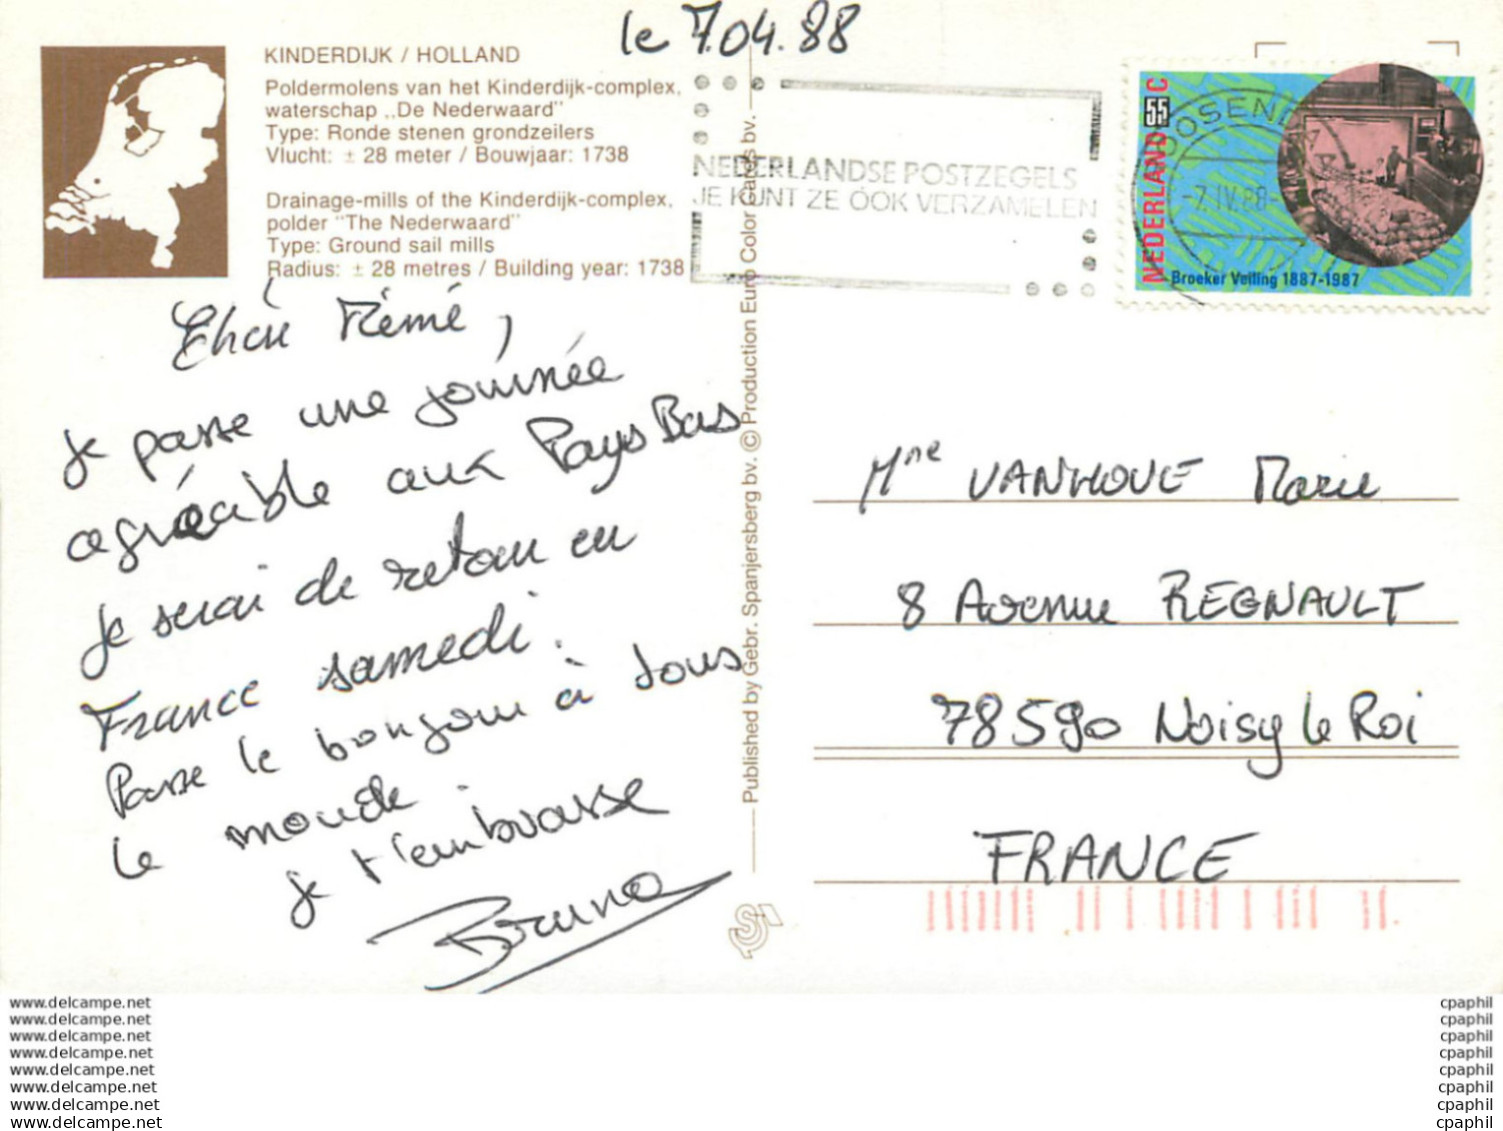 le 7.04.88
KINDERDIJK / HOLLAND
Poldermolens van het Kinderdijk-complex,
waterschap „De Nederwaard"
Type: Ronde stenen grondzeilers
Vlucht: ± 28 meter / Bouwjaar: 1738
Drainage-mills of the Kinderdijk-complex,
polder "The Nederwaard"
Type: Ground sail mills
Radius: ± 28 metres / Building year: 1738
NEDERLANDSE POSTZEGELS
JE KUNT ZE ÓÓK VERZAMELEN
NEDERLAND 55 C
OOSEND
-7.IV.88-
Broeker Veiling 1887-1987
Chère Mémé,
je passe une journée
agréable aux Pays Bas
je serai de retour en
France samedi.
Passe le bonjour à tous
le monde.
je t'embrasse
Bruno
Published by Gebr. Spanjersberg bv. © Production Euro Color Cards bv.
Mme VANHOVE Marie
8 Avenue REGNAULT
78590 Noisy le Roi
FRANCE
www.delcampe.net
www.delcampe.net
www.delcampe.net
www.delcampe.net
www.delcampe.net
www.delcampe.net
www.delcampe.net
www.delcampe.net
cpaphil
cpaphil
cpaphil
cpaphil
cpaphil
cpaphil
cpaphil
cpaphil